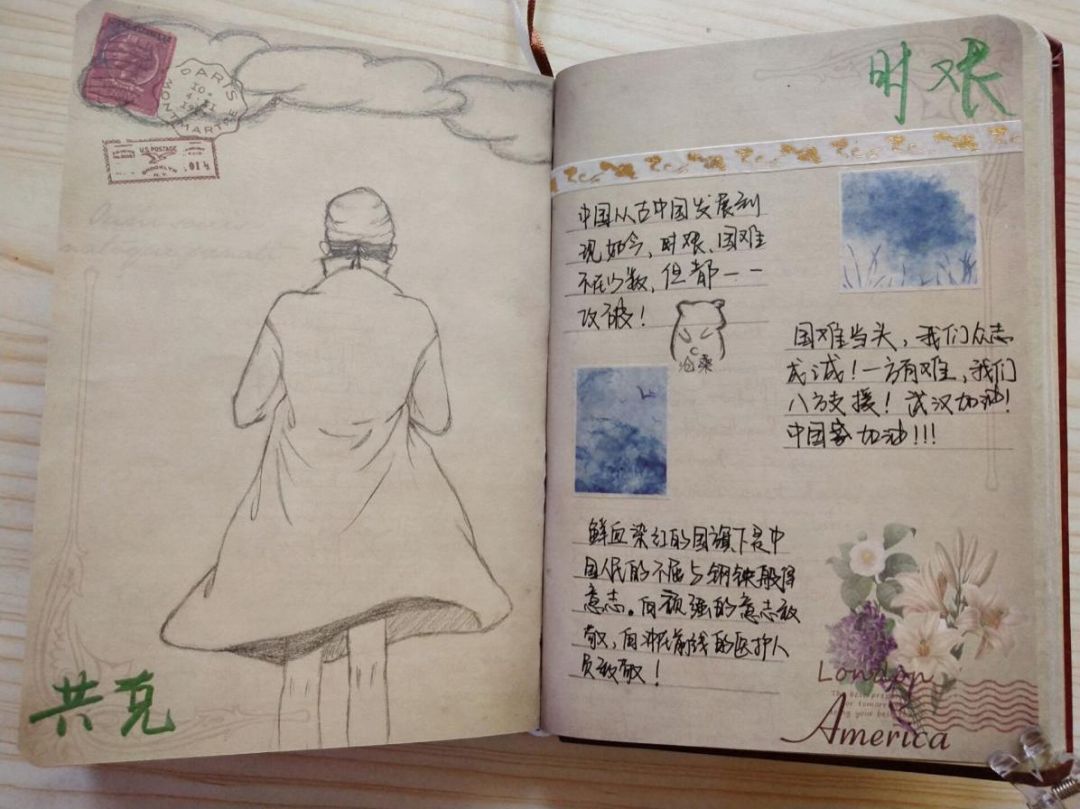 PARIS
U.S. POSTAGE
BROOKLYN
N.Y.
共克
时艰
中国从古中国发展到
现如今，时艰、国难
不在少数，但都一一
攻破！
沧桑
国难当头，我们众志
成诚！一方有难，我们
八方支援！武汉加油！
中国家加油!!!
鲜血染红的国旗下是中
国人民的不屈与钢铁般得
意志。向顽强的意志致
敬，向冲在前线的医护人
员致敬！
London
America